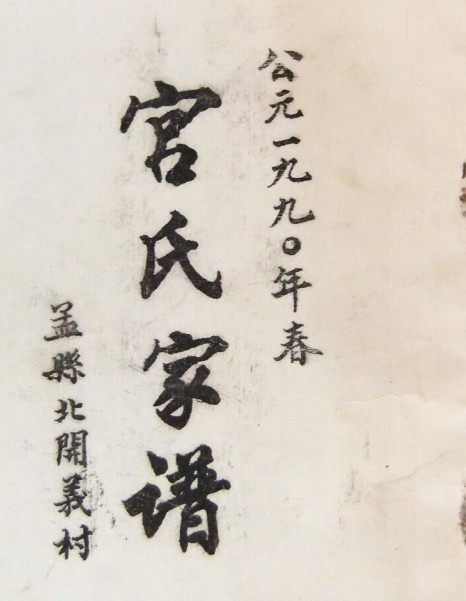 公元一九九〇年春
宫氏家谱
孟縣北開義村